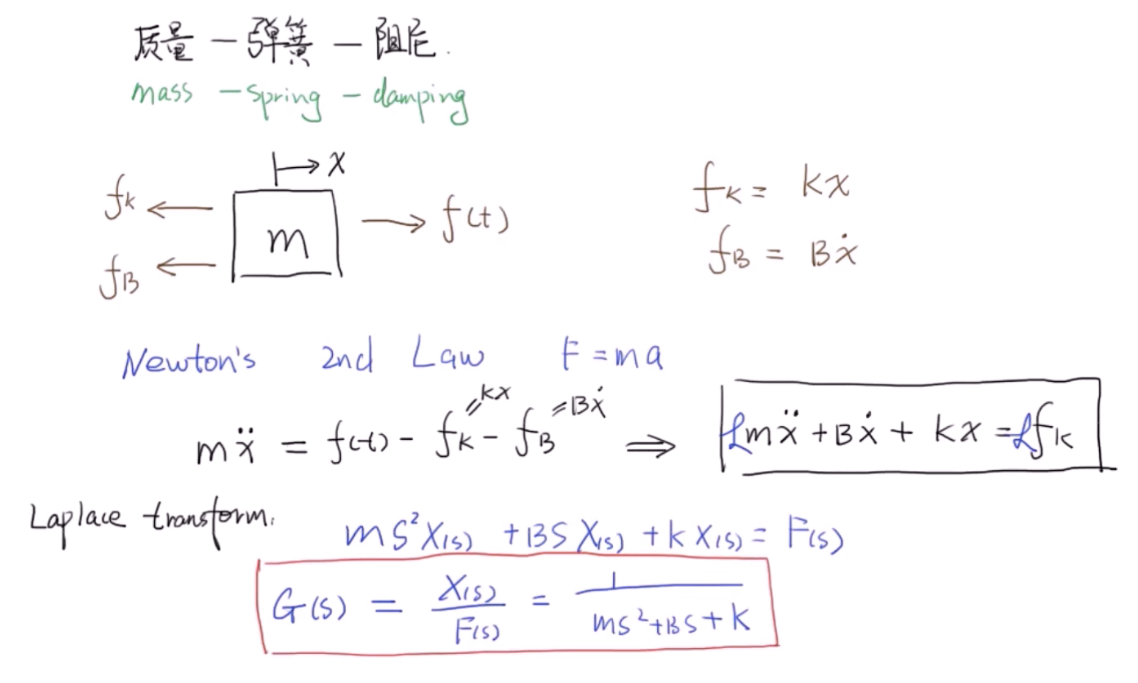 质量 — 弹簧 — 阻尼.
mass — spring — damping
x
f_k ← m → f(t)
f_B ←
f_k = kx
f_B = Bẋ
Newton's 2nd Law F = ma
mẍ = f(t) - f_k - f_B ⇒ ℒmẍ + Bẋ + kx = ℒf_k
=kx =Bẋ
Laplace transform.
ms²X(s) + BSX(s) + kX(s) = F(s)
G(s) = X(s)/F(s) = 1/(ms²+Bs+k)